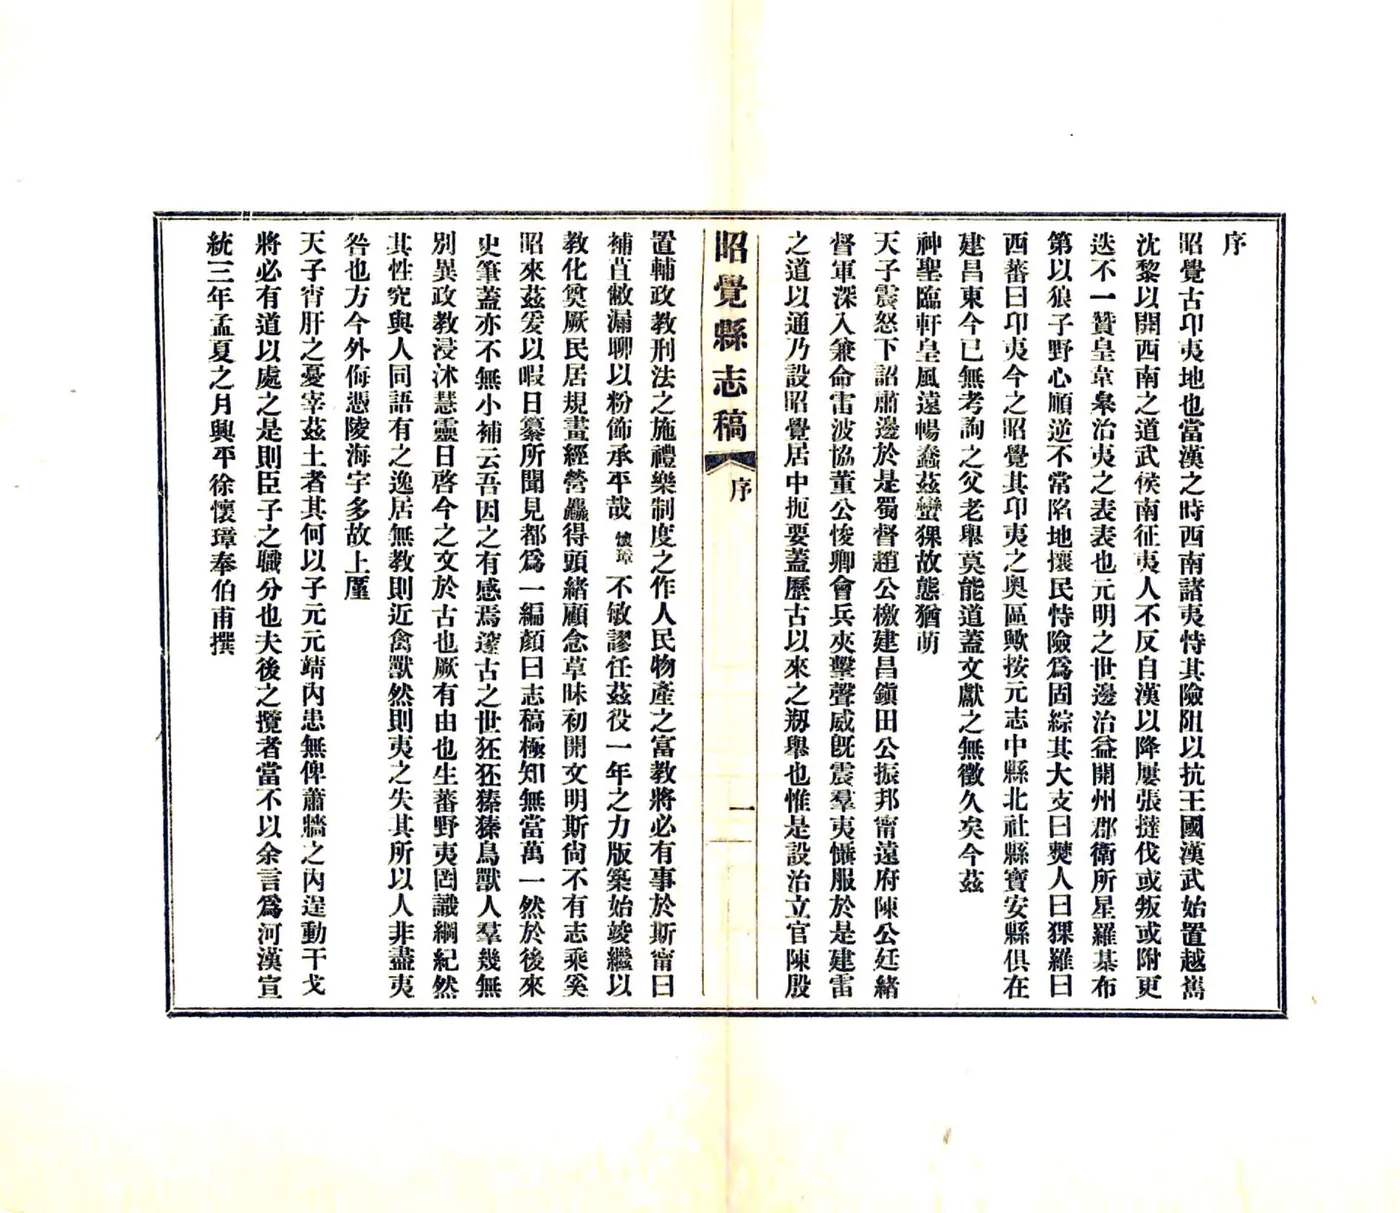 序
昭覺古卭夷地也當漢之時西南諸夷恃其險阻以抗王國漢武始置越嶲
沈黎以開西南之道武侯南征夷人不反自漢以降屢張撻伐或叛或附更
迭不一贊皇韋皋治夷之表表也元明之世邊治益開州郡衛所星羅棊布
第以狼子野心順逆不常陷地攘民恃險爲固綜其大支曰僰人曰猓羅曰
西蕃曰卭夷今之昭覺其卭夷之奧區歟按元志中縣北社縣寶安縣俱在
建昌東今已無考詢之父老舉莫能道蓋文獻之無徵久矣今茲
神聖臨軒皇風遠暢蠢茲蠻猓故態猶萌
天子震怒下詔肅邊於是蜀督趙公檄建昌鎭田公振邦甯遠府陳公廷緒
督軍深入兼命雷波協董公悛卿會兵夾擊聲威旣震羣夷懾服於是建雷
之道以通乃設昭覺居中扼要蓋歷古以來之剏舉也惟是設治立官陳殷
昭覺縣志稿
序
一
置輔政教刑法之施禮樂制度之作人民物產之富教將必有事於斯甯曰
補苴敝漏聊以粉飾承平哉懷璋不敏謬任茲役一年之力版築始竣繼以
教化奠厥民居規畫經營麤得頭緒顧念草昧初開文明斯尙不有志乘奚
昭來茲爰以暇日纂所聞見都爲一編顏曰志稿極知無當萬一然於後來
史筆蓋亦不無小補云吾因之有感焉邃古之世狉狉獉獉鳥獸人羣幾無
別異政教浸沐慧靈日啓今之文於古也厥有由也生蕃野夷罔識綱紀然
其性究與人同語有之逸居無教則近禽獸然則夷之失其所以人非盡夷
咎也方今外侮憑陵海宇多故上廑
天子宵肝之憂宰茲土者其何以子元元靖內患無俾蕭牆之內逞動干戈
將必有道以處之是則臣子之職分也夫後之攬者當不以余言爲河漢宣
統三年孟夏之月興平徐懷璋奉伯甫撰